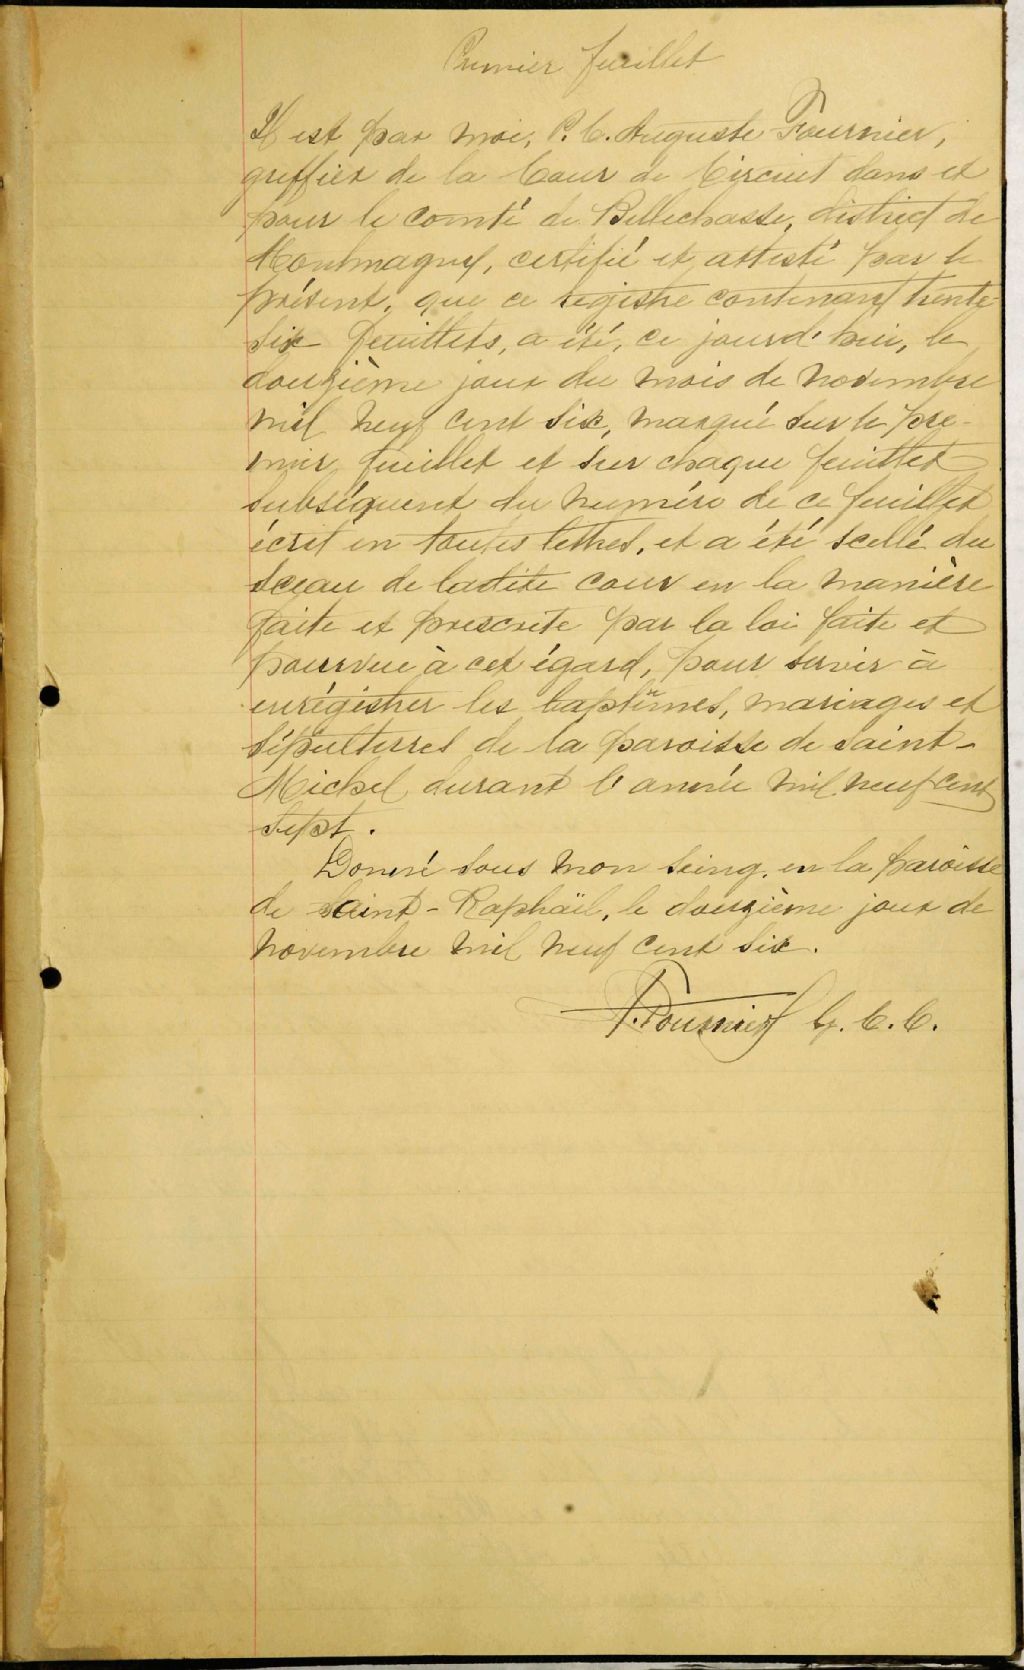 Premier feuillet
Il est par moi, P. C. Auguste Fournier,
greffier de la Cour de Circuit dans et
pour le comté de Bellechasse, district de
Montmagny, certifié et attesté par le
présent, que ce registre contenant trente
six feuillets, a été, ce jourd'hui, le
douzième jour du mois de novembre
mil neuf cent six, marqué sur le pre-
mier feuillet et sur chaque feuillet
subséquent du numéro de ce feuillet
écrit en toutes lettres, et a été scellé du
sceau de ladite cour en la manière
faite et prescrite par la loi faite et
pourvue à cet égard, pour servir à
enrégistrer les baptêmes, mariages et
sépultures de la paroisse de Saint-
Michel durant l'année mil neuf cent
sept.
Donné sous mon seing, en la paroisse
de Saint-Raphaël, le douzième jour de
novembre mil neuf cent six.
P. Fournier G. C. C.